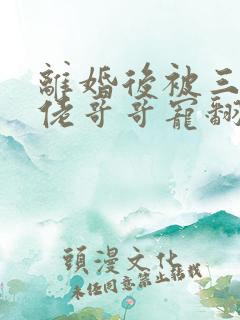 離婚後被三
佬哥哥寵翻
頭漫文化
未經同意禁止轉載